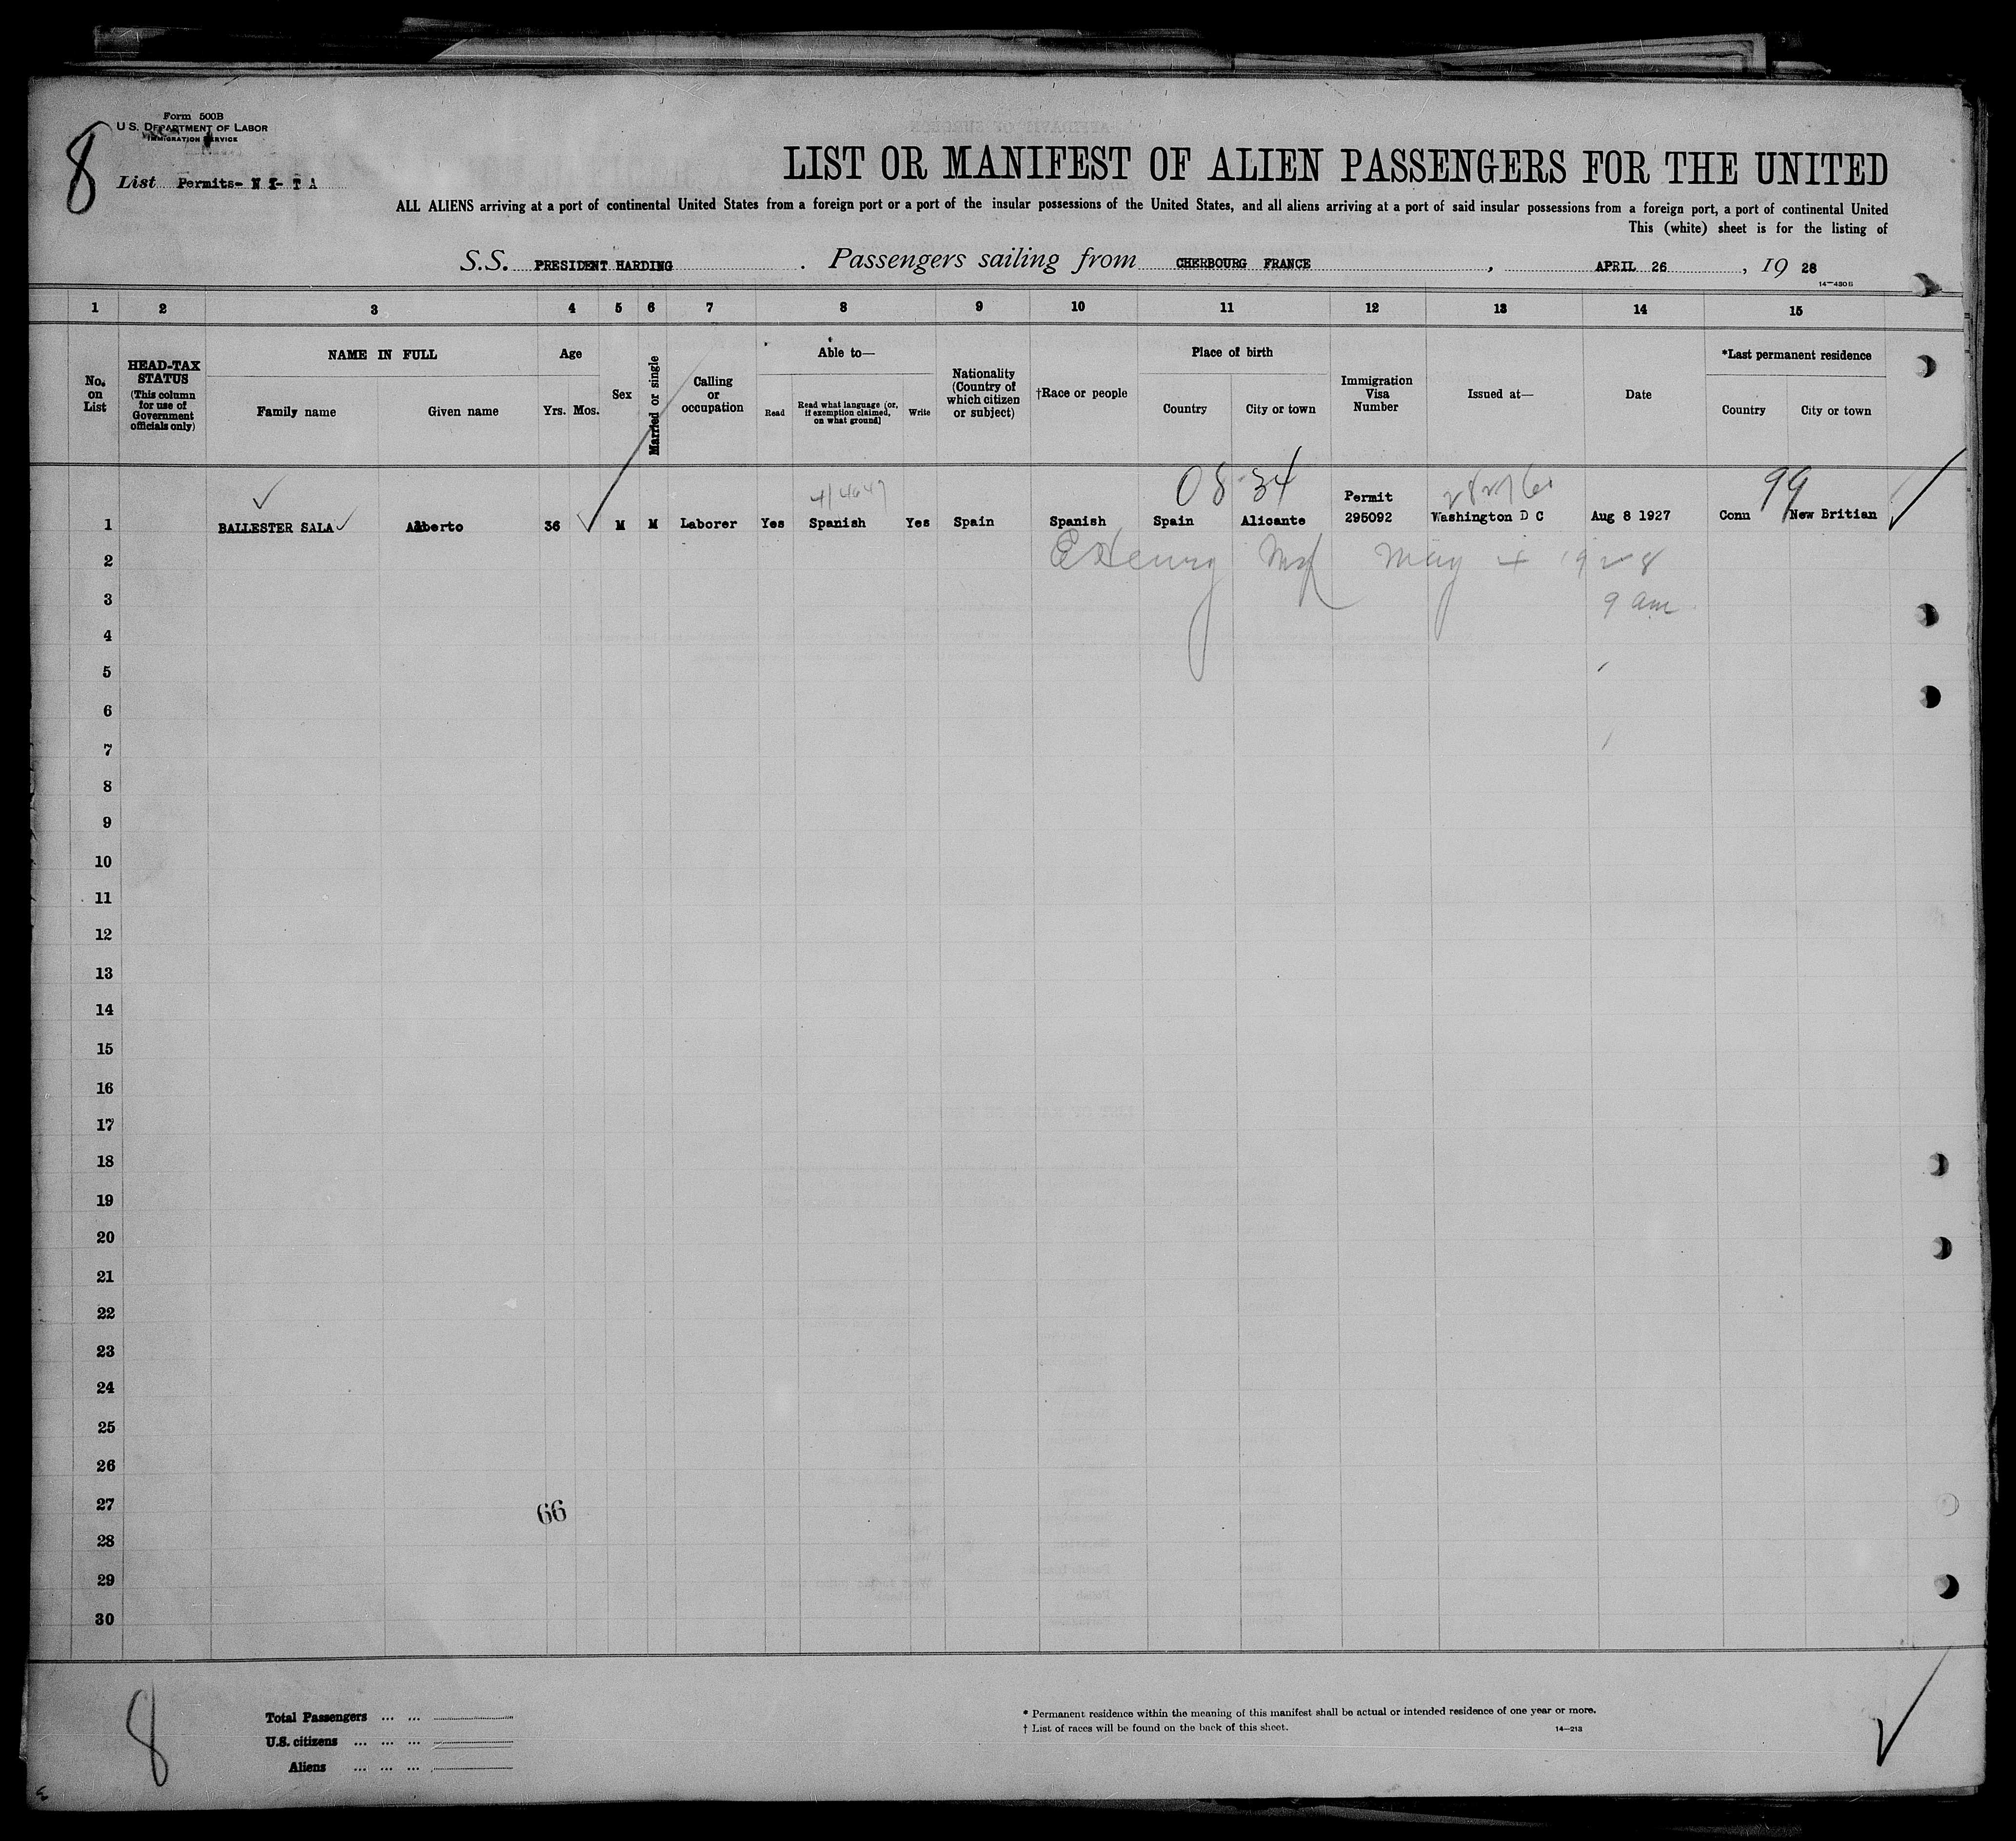 Form 500B
U.S. DEPARTMENT OF LABOR
IMMIGRATION SERVICE
8
List Permits- N I- T A
LIST OR MANIFEST OF ALIEN PASSENGERS FOR THE UNITED
ALL ALIENS arriving at a port of continental United States from a foreign port or a port of the insular possessions of the United States, and all aliens arriving at a port of said insular possessions from a foreign port, a port of continental United
This (white) sheet is for the listing of
S.S. PRESIDENT HARDING. Passengers sailing from CHERBOURG FRANCE, APRIL 26, 19 28
14—430B
1 2 3 4 5 6 7 8 9 10 11 12 13 14 15
No. on List
HEAD-TAX STATUS
(This column for use of Government officials only)
NAME IN FULL
Family name Given name
Age
Yrs. Mos.
Sex
Married or single
Calling or occupation
Able to—
Read
Read what language (or, if exemption claimed, on what ground)
Write
Nationality (Country of which citizen or subject)
†Race or people
Place of birth
Country City or town
Immigration Visa Number
Issued at—
Date
*Last permanent residence
Country City or town
08-34 99
Permit
1 BALLESTER SALA Alberto 36 M M Laborer Yes Spanish Yes Spain Spanish Spain Alicante 295092 Washington D C Aug 8 1927 Conn New Britian
May 4 1928
9 am
2
3
4
5
6
7
8
9
10
11
12
13
14
15
16
17
18
19
20
21
22
23
24
25
26
27
66
28
29
30
8
Total Passengers
U.S. citizens
Aliens
* Permanent residence within the meaning of this manifest shall be actual or intended residence of one year or more.
† List of races will be found on the back of this sheet.
14—213